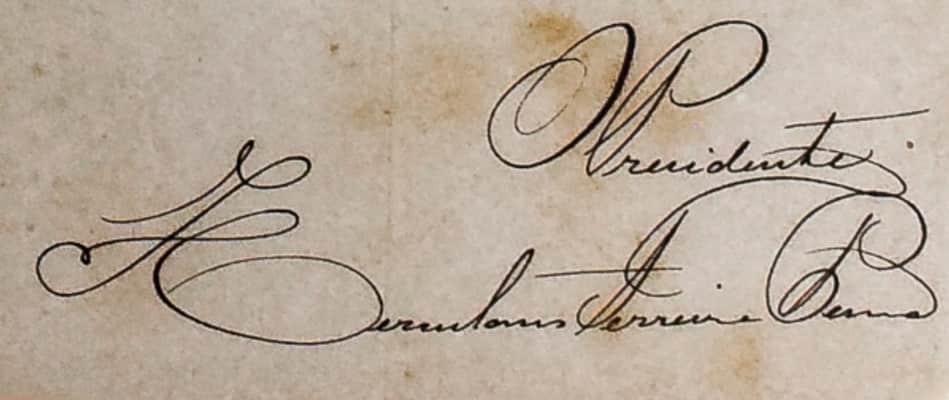 Presidente
Herculano Ferreira Penna